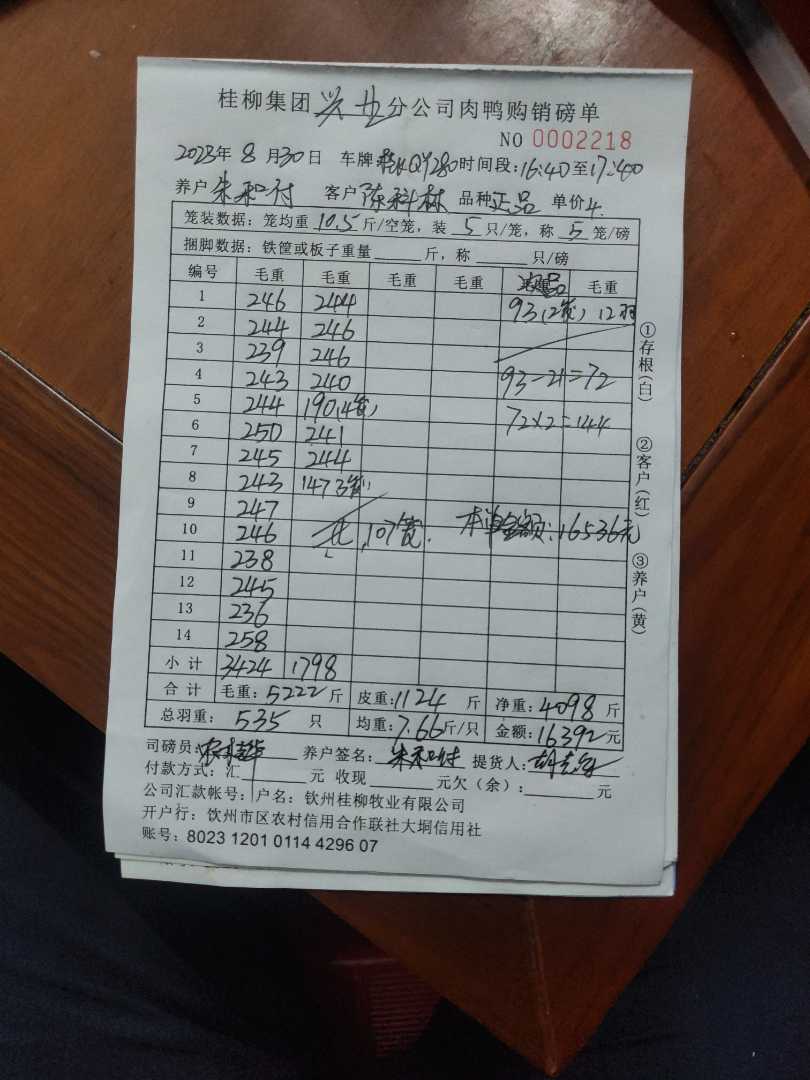 桂柳集团兴业分公司肉鸭购销磅单
NO 0002218
2023年 8 月30日 车牌 QY280时间段:16:40至17:40
养户 朱和付 客户 陈科林 品种 正品 单价4.
笼装数据:笼均重 10.5 斤/空笼,装 5 只/笼,称 5 笼/磅
捆脚数据:铁筐或板子重量 斤,称 只/磅
编号 毛重 毛重 毛重 毛重 毛重
1 246 244 93(2笼) 12羽
2 244 246
3 239 246
4 243 240 93-21=72
5 244 190(4笼) 72×2=144
6 250 241
7 245 244
8 243 147 3笼)
9 247
10 246 共107笼. 本单金额:16536元
11 238
12 245
13 236
14 258
小计 3424 1798
合计 毛重:5222斤 皮重:1124 斤 净重:4098 斤
总羽重: 535 只 均重:7.66斤/只 金额:16392元
司磅员: 养户签名:朱和付 提货人:
付款方式:汇 元 收现 元欠(余): 元
公司汇款帐号:户名:钦州桂柳牧业有限公司
开户行:钦州市区农村信用合作联社大垌信用社
账号:8023 1201 0114 4296 07
①存根(白)
②客户(红)
③养户(黄)